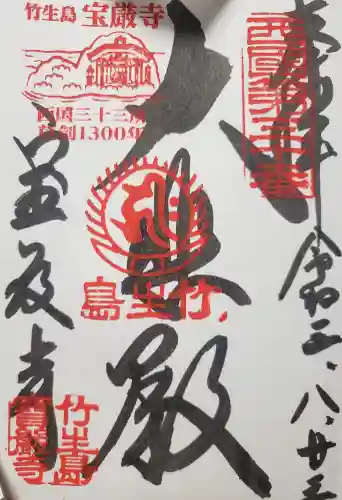 奉拝
令和五、八、廿三
西國第三十番
大悲殿
竹生島
竹生島 宝厳寺
西国三十三所
草創1300年
宝厳寺
竹生島
寶嚴寺